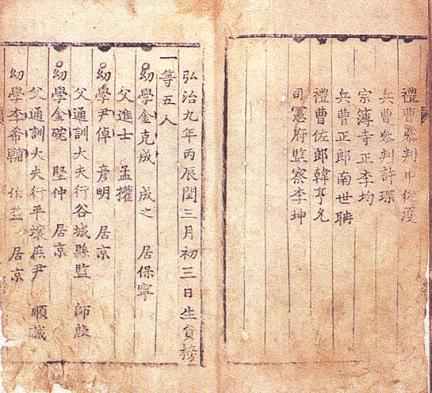 禮曹參判申從濩
兵曹參判許琛
宗簿寺正李均
兵曹正郎南世聃
禮曹佐郎韓亨允
司憲府監察李坤
弘治九年丙辰閏三月初三日生員榜
一等五人
幼學金克成 成之 居保寧
父進士 孟權
幼學尹倬 彦明 居京
父通訓大夫行谷城縣監 師殷
幼學金碗 堅仲 居京
父通訓大夫行平壤庶尹 順誠
幼學李希 居京